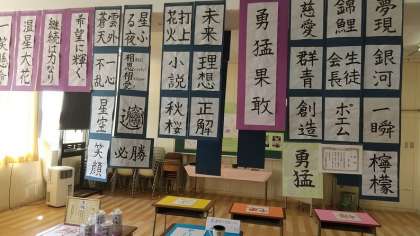 夢現
銀河
一瞬
檸檬
錦鯉
生徒会長
ポエム
慈愛
群青
創造
勇猛
勇猛果敢
未来
理想
正解
打上花火
小説
秋桜
星ふる夜
相思相愛
必勝
雲外蒼天
一心不乱
星空
笑顔
希望に輝く
継続は力なり
温星大花
一笑懸命